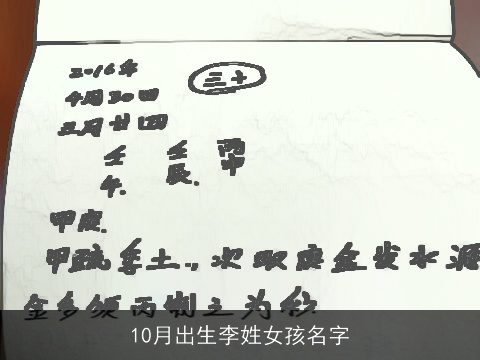 2016年
三十
4月30日
三月廿四
壬 壬 丙
午. 辰. 申
甲庚.
甲疏季土., 次取庚金发水源
金多须丙制之为妙
10月出生李姓女孩名字